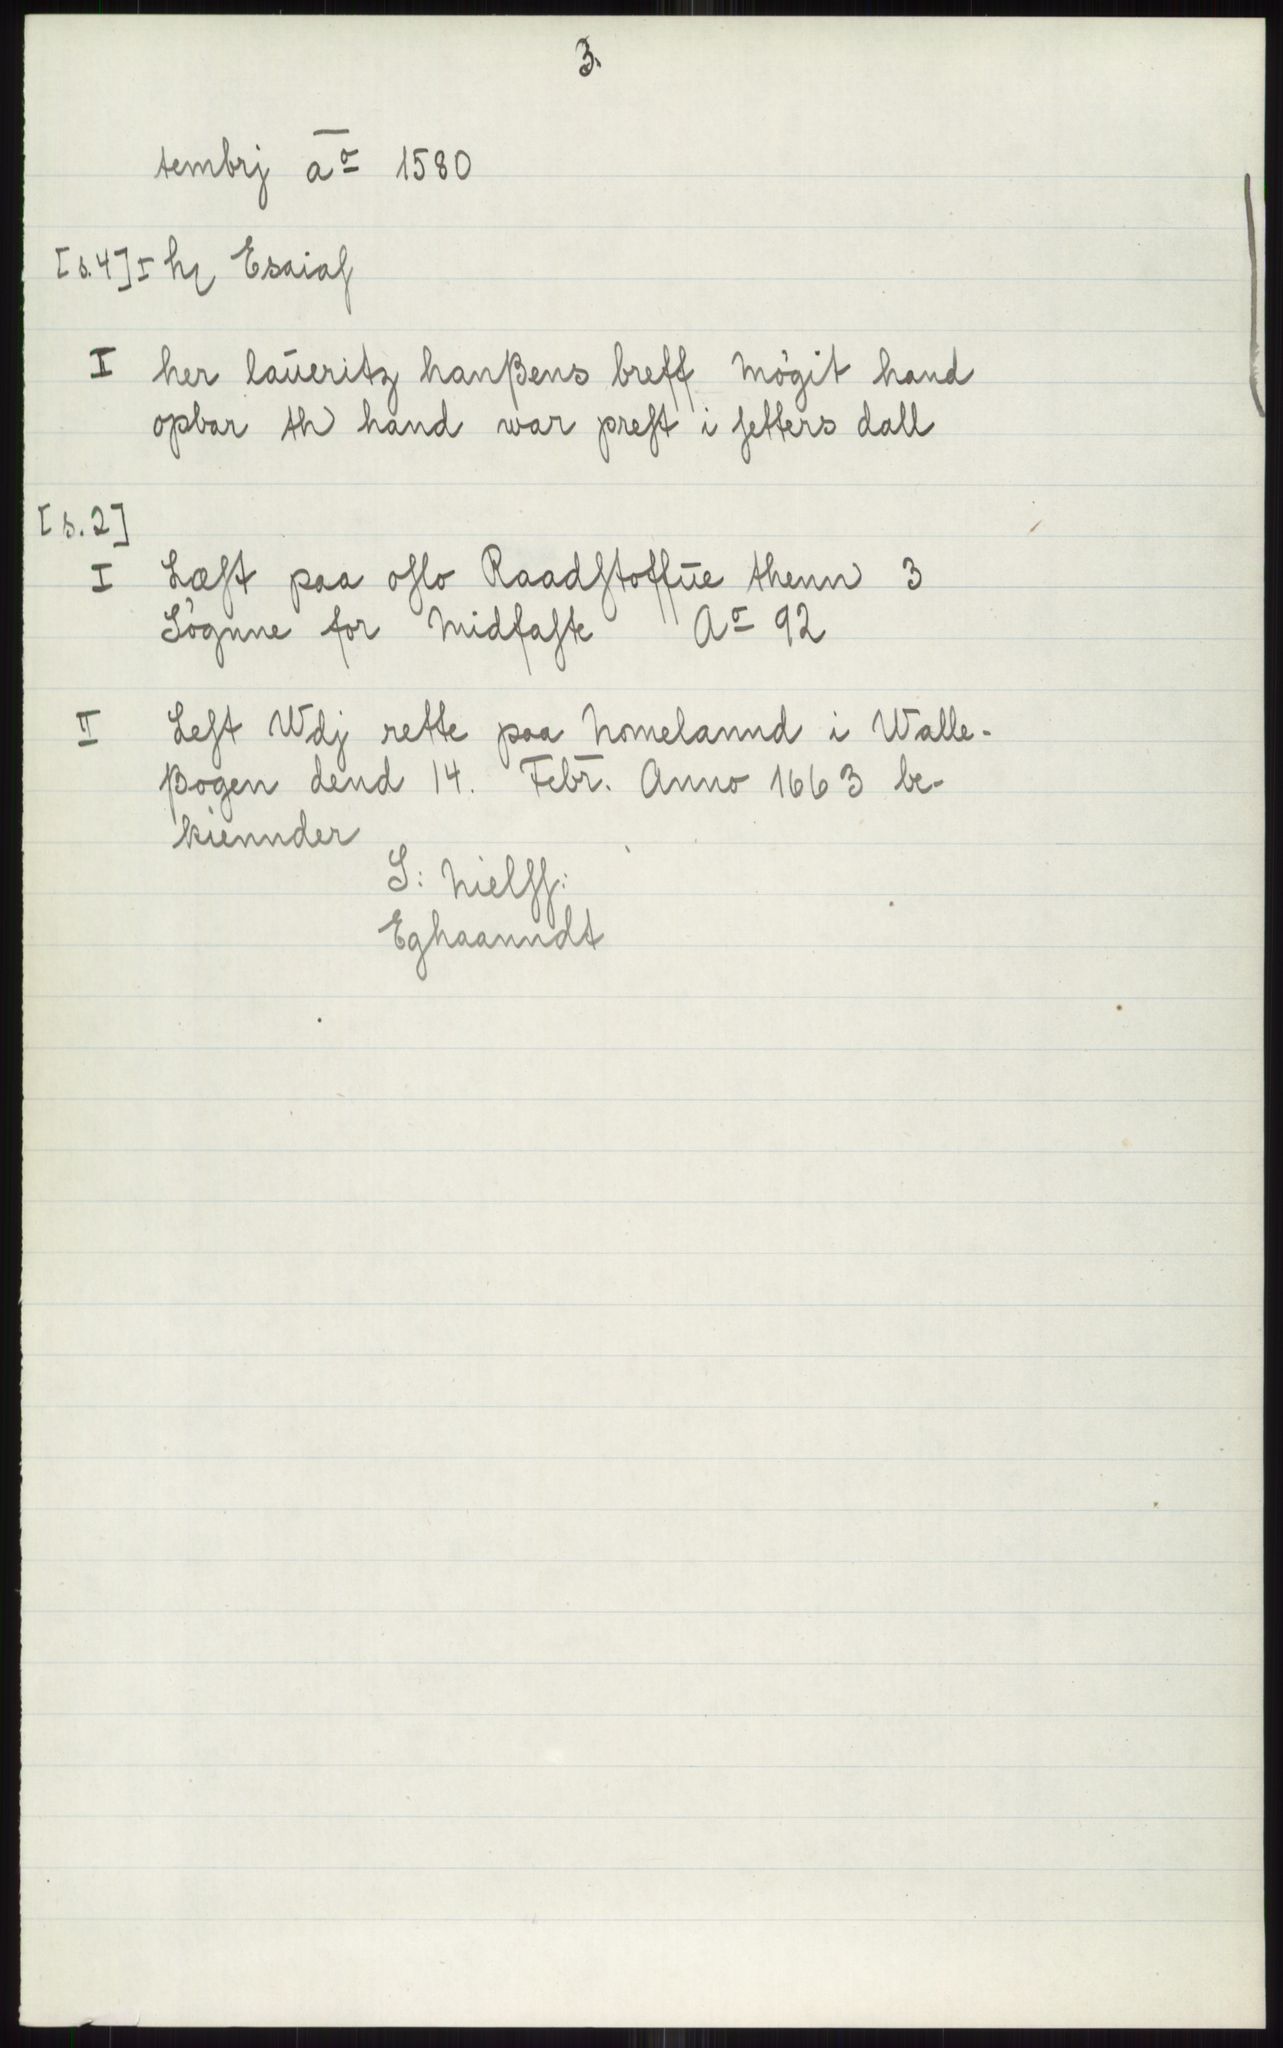 3.
tembrj a̅o 1580
[s.4] I hr Esaiaſ
I her laūeritz hanßens breff Mögit hand
opbar th hand war preſt i ſetters dall
[s.2]
I Læſt paa oſlo Raadſtoffūe thenn 3
Sögnne for Midfaſte Ao 92
II Leſt Wdj rette paa homelannd i Walle-
ßogen dend 14. Febr̅. Anno 1663 be-
kiennder
S: Nielſſ:
Eghaanndt